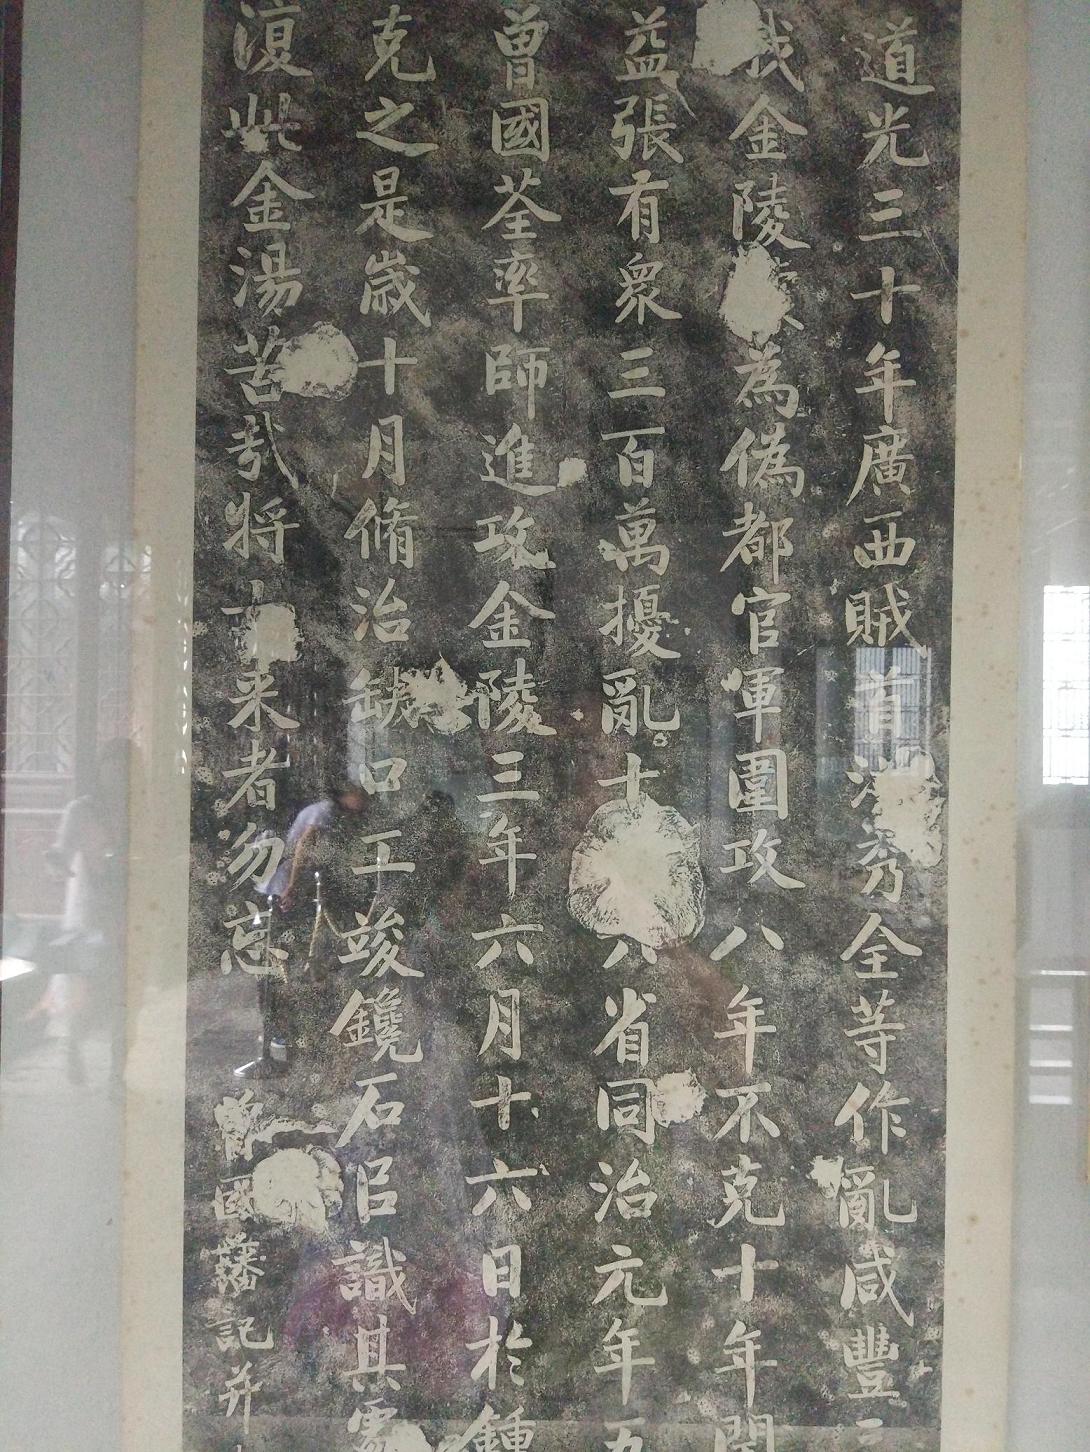 道光三十年廣西賊首洪秀全等作亂咸豐三
我金陵為偽都官軍圍攻八年不克十年閒
益張有衆三百萬擾亂十六省同治元年五
曾國荃率師進攻金陵三年六月十六日於鍾
克之是歲十月脩治缺口工竣鑱石㠯識其處
復此金湯苦哉將士來者勿忘
曾國藩記并